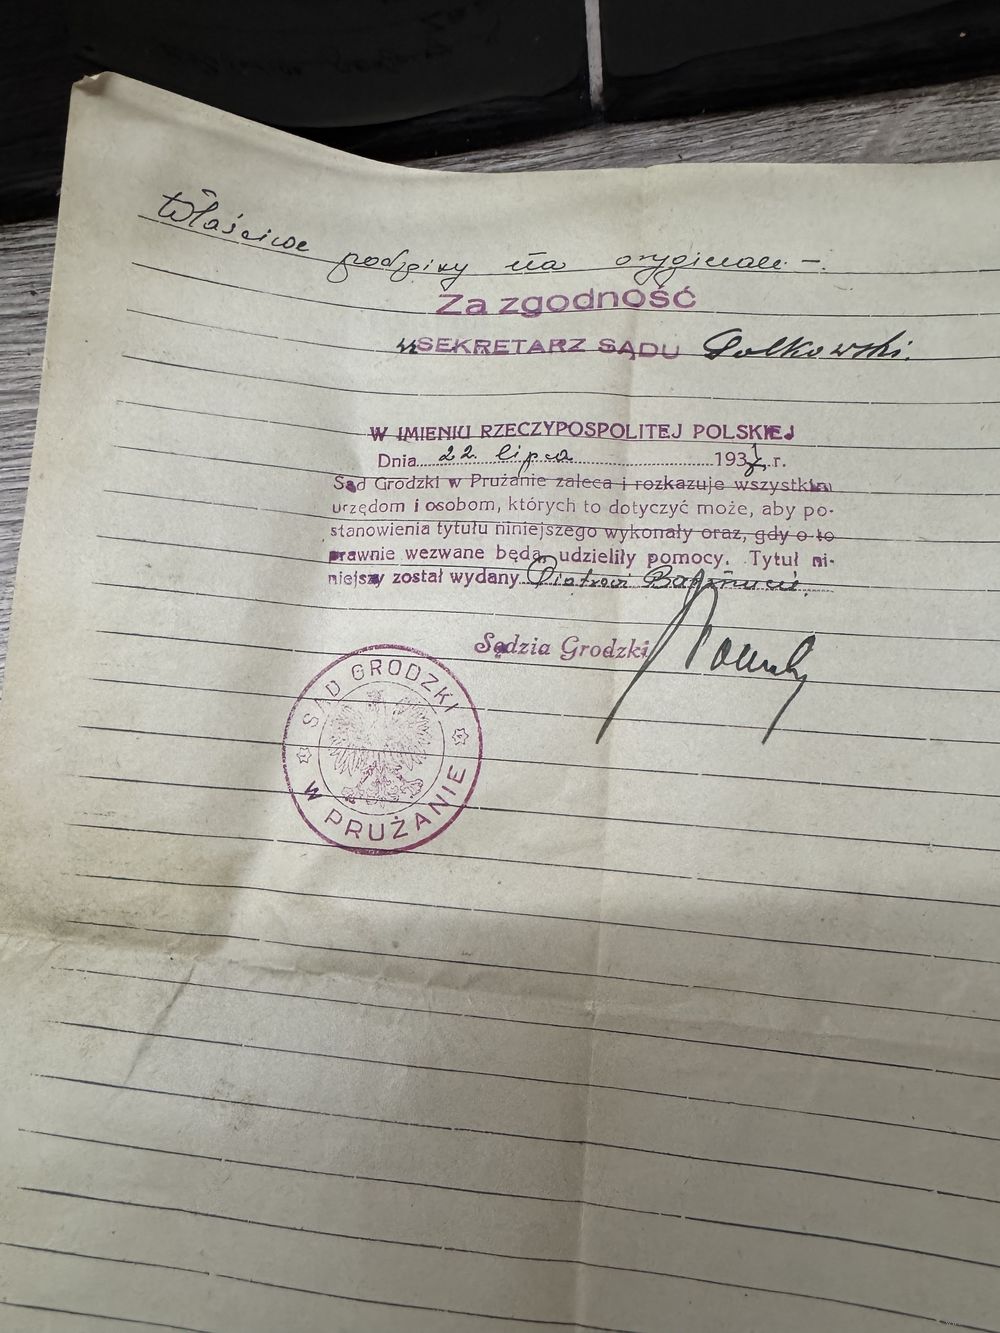 Właściwe podpisy na oryginale –.
Za zgodność
SEKRETARZ SĄDU
W IMIENIU RZECZYPOSPOLITEJ POLSKIEJ
Dnia 22 lipca 193 r.
Sąd Grodzki w Prużanie zaleca i rozkazuje wszystkim
urzędom i osobom, których to dotyczyć może, aby po-
stanowienia tytułu niniejszego wykonały oraz, gdy o to
prawnie wezwane będą, udzieliły pomocy. Tytuł ni-
niejszy został wydany Piotrowi
Sędzia Grodzki
SĄD GRODZKI
W PRUŻANIE